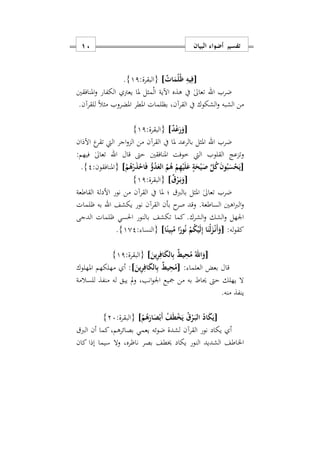 تفسير أضواء البيان
١٠
[فِيهِ ظُلُمَاتٌ] {البقرة:١٩}.
ضرب الله تعالى في هذه الآية المثل لما يعتري الكفار والمنافقين
من الشبه والشكوك في القرآن، بظلمات المطر المضروب مثلاً للقرآن.
[وَرَعْدٌ] {البقرة:١٩}
ضرب الله المثل بالرعد لما في القرآن من الزواجر التي تقرع الآذان
وتزعج القلوب التي خوفت المنافقين حتى قال الله تعالى فيهم:
[يَحْسَبُونَ كُلَّ صَيْحَةٍ عَلَيْهِمْ هُمُ الْعَدُوُّ فَاحْذَرْهُمْ] {المنافقون:٤}.
[وَبَرْقٌ] {البقرة:١٩}
ضرب تعالى المثل بالبرق ؛ لما في القرآن من نور الأدلة القاطعة
والبراهين الساطعة. وقد صرح بأن القرآن نور يكشف الله به ظلمات
الجهل والشك والشرك. كما تكشف بالنور الحسي ظلمات الدجى
كقوله: [وَأَنْزَلْنَا إِلَيْكُمْ نُورًا مُبِينًا] {النساء:١٧٤}.
[وَاللهُ مُحِيطٌ بِالكَافِرِينَ] {البقرة:١٩}
قال بعض العلماء: [مُحِيطٌ بِالكَافِرِينَ]: أي مهلكهم المهلوك
لا يهلك حتى يحاط به من جميع الجوانب، ولم يبق له منفذ للسلامة
ينفذ منه.
[يَكَادُ البَرْقُ يَخْطَفُ أَبْصَارَهُمْ] {البقرة:٢٠}
أي يكاد نور القرآن لشدة ضوئه يعمي بصائرهم، كما أن البرق
الخاطف الشديد النور يكاد يخطف بصر ناظره، ولا سيما إذا كان